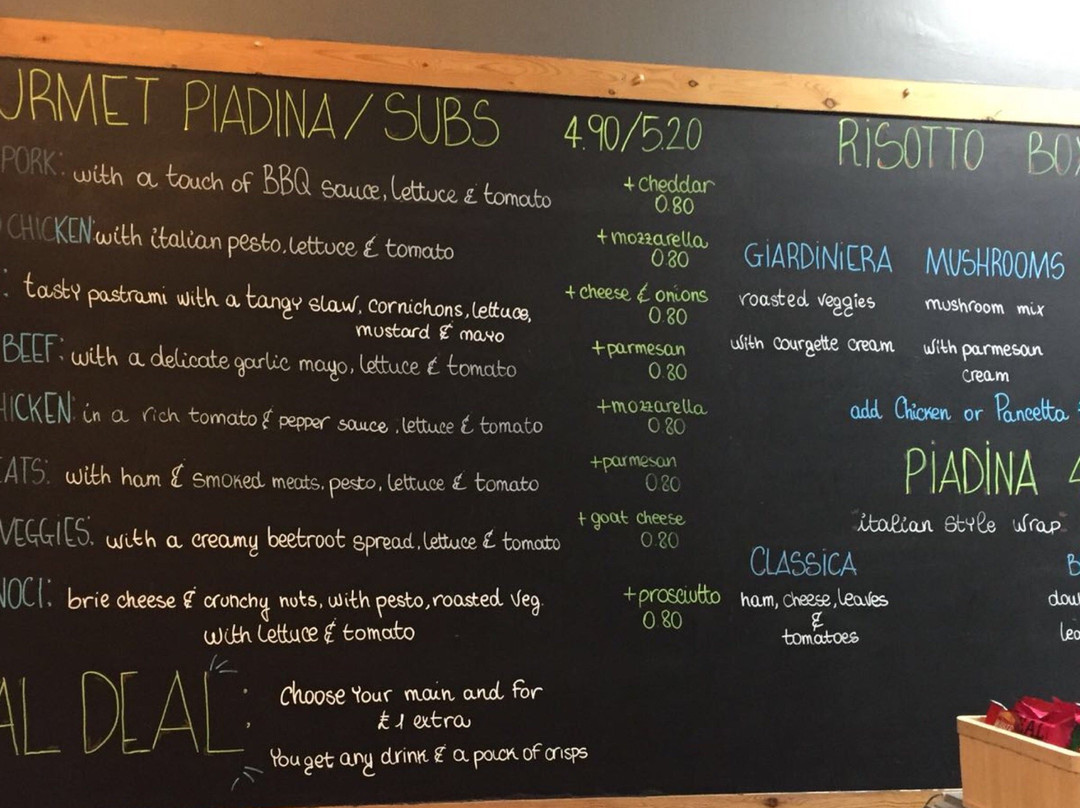 URMET PIADINA / SUBS 4.90/5.20
PORK: with a touch of BBQ sauce, lettuce & tomato + cheddar
0.80
CHICKEN: with italian pesto, lettuce & tomato + mozzarella
0.80
: tasty pastrami with a tangy slaw, cornichons, lettuce, + cheese & onions
mustard & mayo 0.80
BEEF: with a delicate garlic mayo, lettuce & tomato + parmesan
0.80
HICKEN: in a rich tomato & pepper sauce, lettuce & tomato + mozzarella
0.80
EATS: with ham & smoked meats, pesto, lettuce & tomato + parmesan
0.80
VEGGIES: with a creamy beetroot spread, lettuce & tomato + goat cheese
0.80
NOCI: brie cheese & crunchy nuts, with pesto, roasted veg. + prosciutto
with lettuce & tomato 0.80
AL DEAL:
Choose Your main and for
£1 extra
You get any drink & a pack of crisps
RISOTTO BOX
GIARDINIERA
roasted veggies
with courgette cream
MUSHROOMS
mushroom mix
with parmesan
cream
add Chicken or Pancetta
PIADINA 4
italian style wrap
CLASSICA
ham, cheese, leaves
&
tomatoes
B
dou
lea